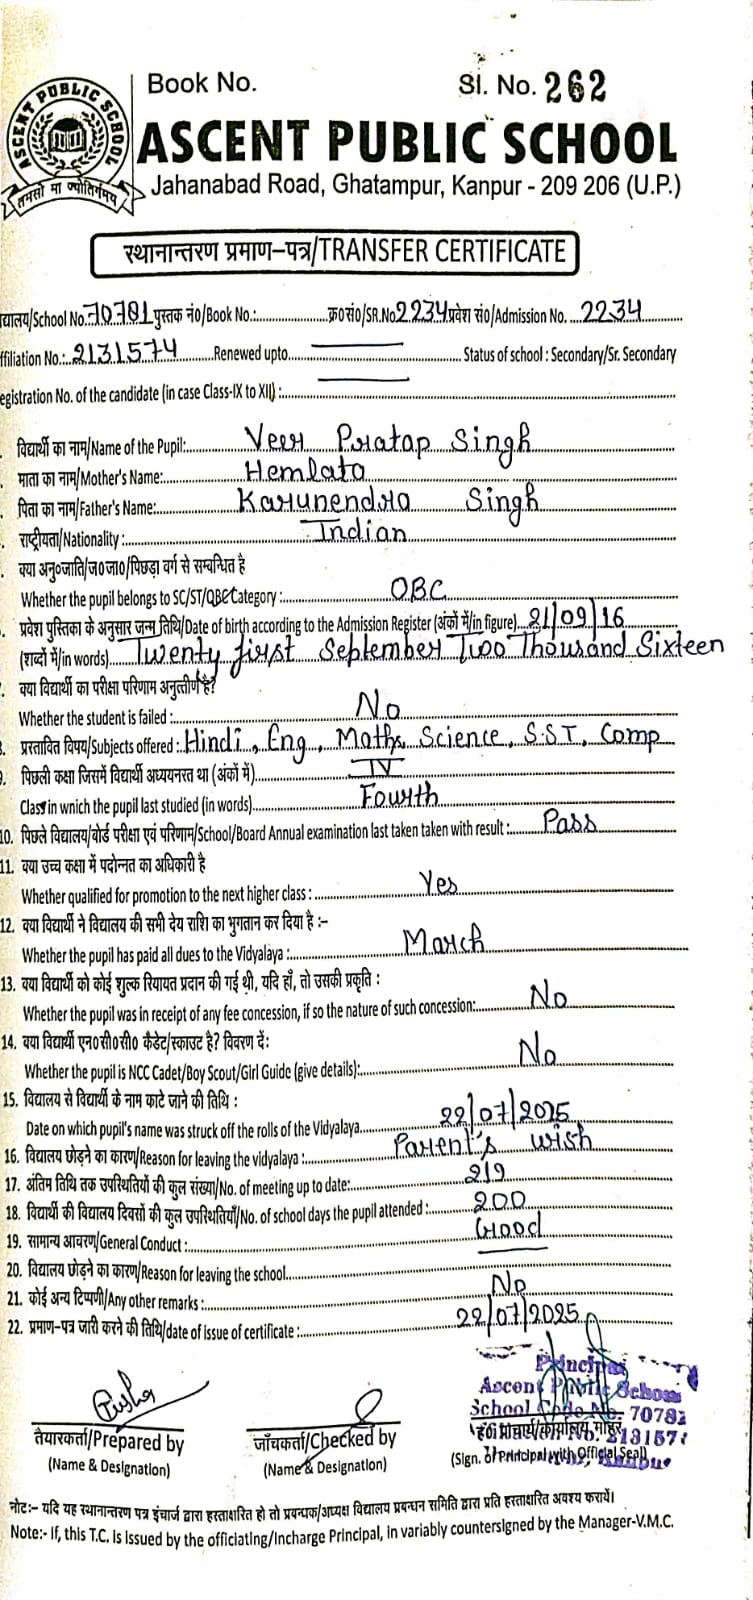 Book No. Sl. No. 262
ASCENT PUBLIC SCHOOL
तमसो मा ज्योतिर्गमय
ASCENT PUBLIC SCHOOL
Jahanabad Road, Ghatampur, Kanpur - 209 206 (U.P.)
स्थानान्तरण प्रमाण-पत्र/TRANSFER CERTIFICATE
द्यालय/School No. 70781 पुस्तक नं०/Book No.: क्र०सं०/SR.No 2234 प्रवेश सं०/Admission No. 2234
ffiliation No.: 2131574 Renewed upto Status of school : Secondary/Sr. Secondary
egistration No. of the candidate (in case Class-IX to XII) :
विद्यार्थी का नाम/Name of the Pupil: Veer Pratap Singh
माता का नाम/Mother's Name: Hemlata
पिता का नाम/Father's Name: Karunendra Singh
राष्ट्रीयता/Nationality : Indian
क्या अनु०जाति/ज०जा०/पिछड़ा वर्ग से सम्बन्धित है
Whether the pupil belongs to SC/ST/OBC Category : OBC
प्रवेश पुस्तिका के अनुसार जन्म तिथि/Date of birth according to the Admission Register (अंकों में/in figure) 21/09/16
(शब्दों में/in words) Twenty first September Two Thousand Sixteen
क्या विद्यार्थी का परीक्षा परिणाम अनुत्तीर्ण है?
Whether the student is failed : No
प्रस्तावित विषय/Subjects offered : Hindi, Eng, Maths, Science, S.ST, Comp
पिछली कक्षा जिसमें विद्यार्थी अध्ययनरत था (अंकों में) IV
Class in which the pupil last studied (in words) Fourth
10. पिछले विद्यालय/बोर्ड परीक्षा एवं परिणाम/School/Board Annual examination last taken taken with result : Pass
11. क्या उच्च कक्षा में पदोन्नत का अधिकारी है
Whether qualified for promotion to the next higher class : Yes
12. क्या विद्यार्थी ने विद्यालय की सभी देय राशि का भुगतान कर दिया है :-
Whether the pupil has paid all dues to the Vidyalaya : March
13. क्या विद्यार्थी को कोई शुल्क रियायत प्रदान की गई थी, यदि हाँ, तो उसकी प्रकृति :
Whether the pupil was in receipt of any fee concession, if so the nature of such concession: No
14. क्या विद्यार्थी एन०सी०सी० कैडेट/स्काउट है? विवरण दें:
Whether the pupil is NCC Cadet/Boy Scout/Girl Guide (give details): No
15. विद्यालय से विद्यार्थी के नाम काटे जाने की तिथि :
Date on which pupil's name was struck off the rolls of the Vidyalaya 22/07/2025
16. विद्यालय छोड़ने का कारण/Reason for leaving the vidyalaya : Parent's wish
17. अंतिम तिथि तक उपस्थितियों की कुल संख्या/No. of meeting up to date: 219
18. विद्यार्थी की विद्यालय दिवसों की कुल उपस्थितियाँ/No. of school days the pupil attended : 200
19. सामान्य आचरण/General Conduct : Good
20. विद्यालय छोड़ने का कारण/Reason for leaving the school
21. कोई अन्य टिप्पणी/Any other remarks : No
22. प्रमाण-पत्र जारी करने की तिथि/date of issue of certificate : 22/07/2025
Principal
Ascent Public School
School Code No. 70781
तैयारकर्ता/Prepared by जाँचकर्ता/Checked by
(Name & Designation) (Name & Designation) (Sign. of Principal with Official Seal)
नोट:- यदि यह स्थानान्तरण पत्र इंचार्ज द्वारा हस्ताक्षरित हो तो प्रबन्धक/अध्यक्ष विद्यालय प्रबन्धन समिति द्वारा प्रति हस्ताक्षरित अवश्य करायें।
Note:- If, this T.C. is issued by the officiating/Incharge Principal, in variably countersigned by the Manager-V.M.C.